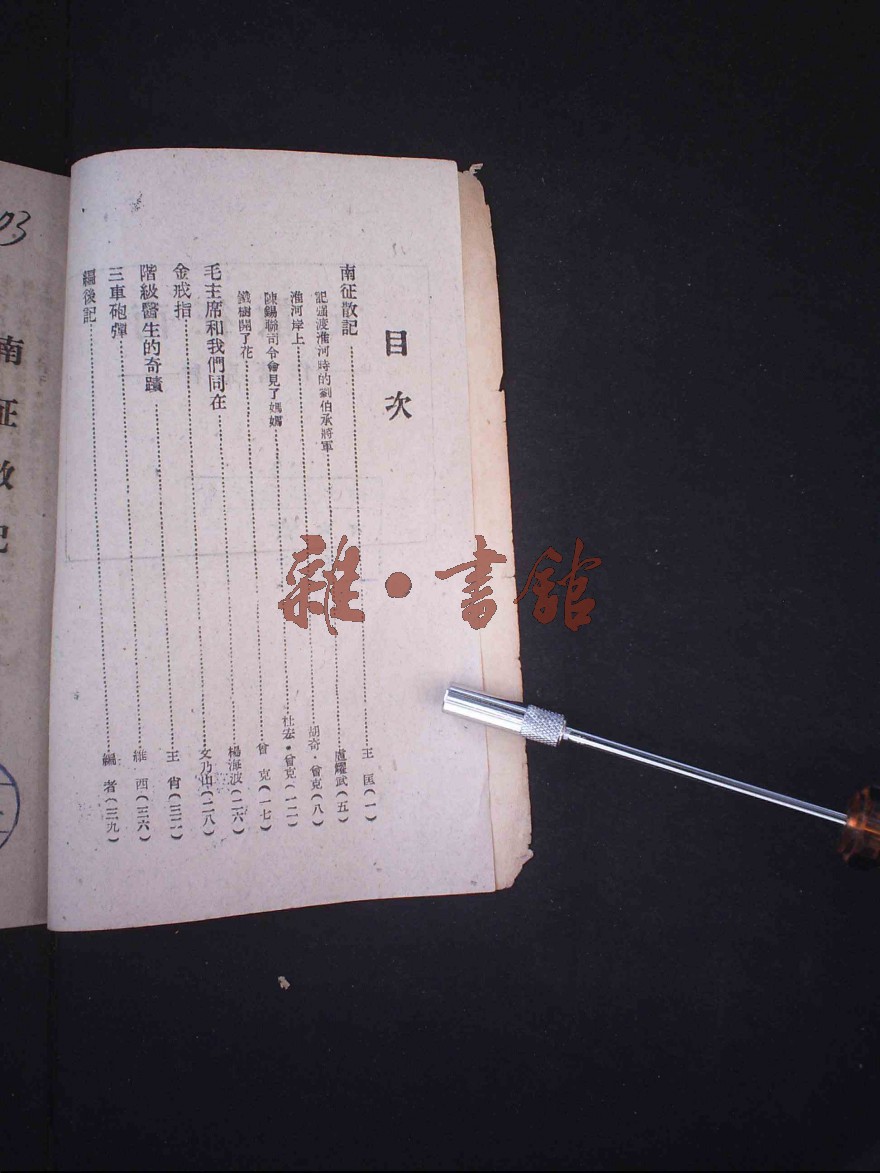 目次
南征散記 王匡(一)
記强渡淮河時的劉伯承將軍 盧耀武(五)
淮河岸上 胡奇・曾克(八)
陳錫聯司令會見了媽媽 杜宏・曾克(一二)
鐵樹開了花 曾克(一七)
毛主席和我們同在 楊海波(二六)
金戒指 文乃山(二八)
階級醫生的奇蹟 王肖(三二)
三車砲彈 維西(三六)
編後記 編者(三九)
南征散記
雜・書館